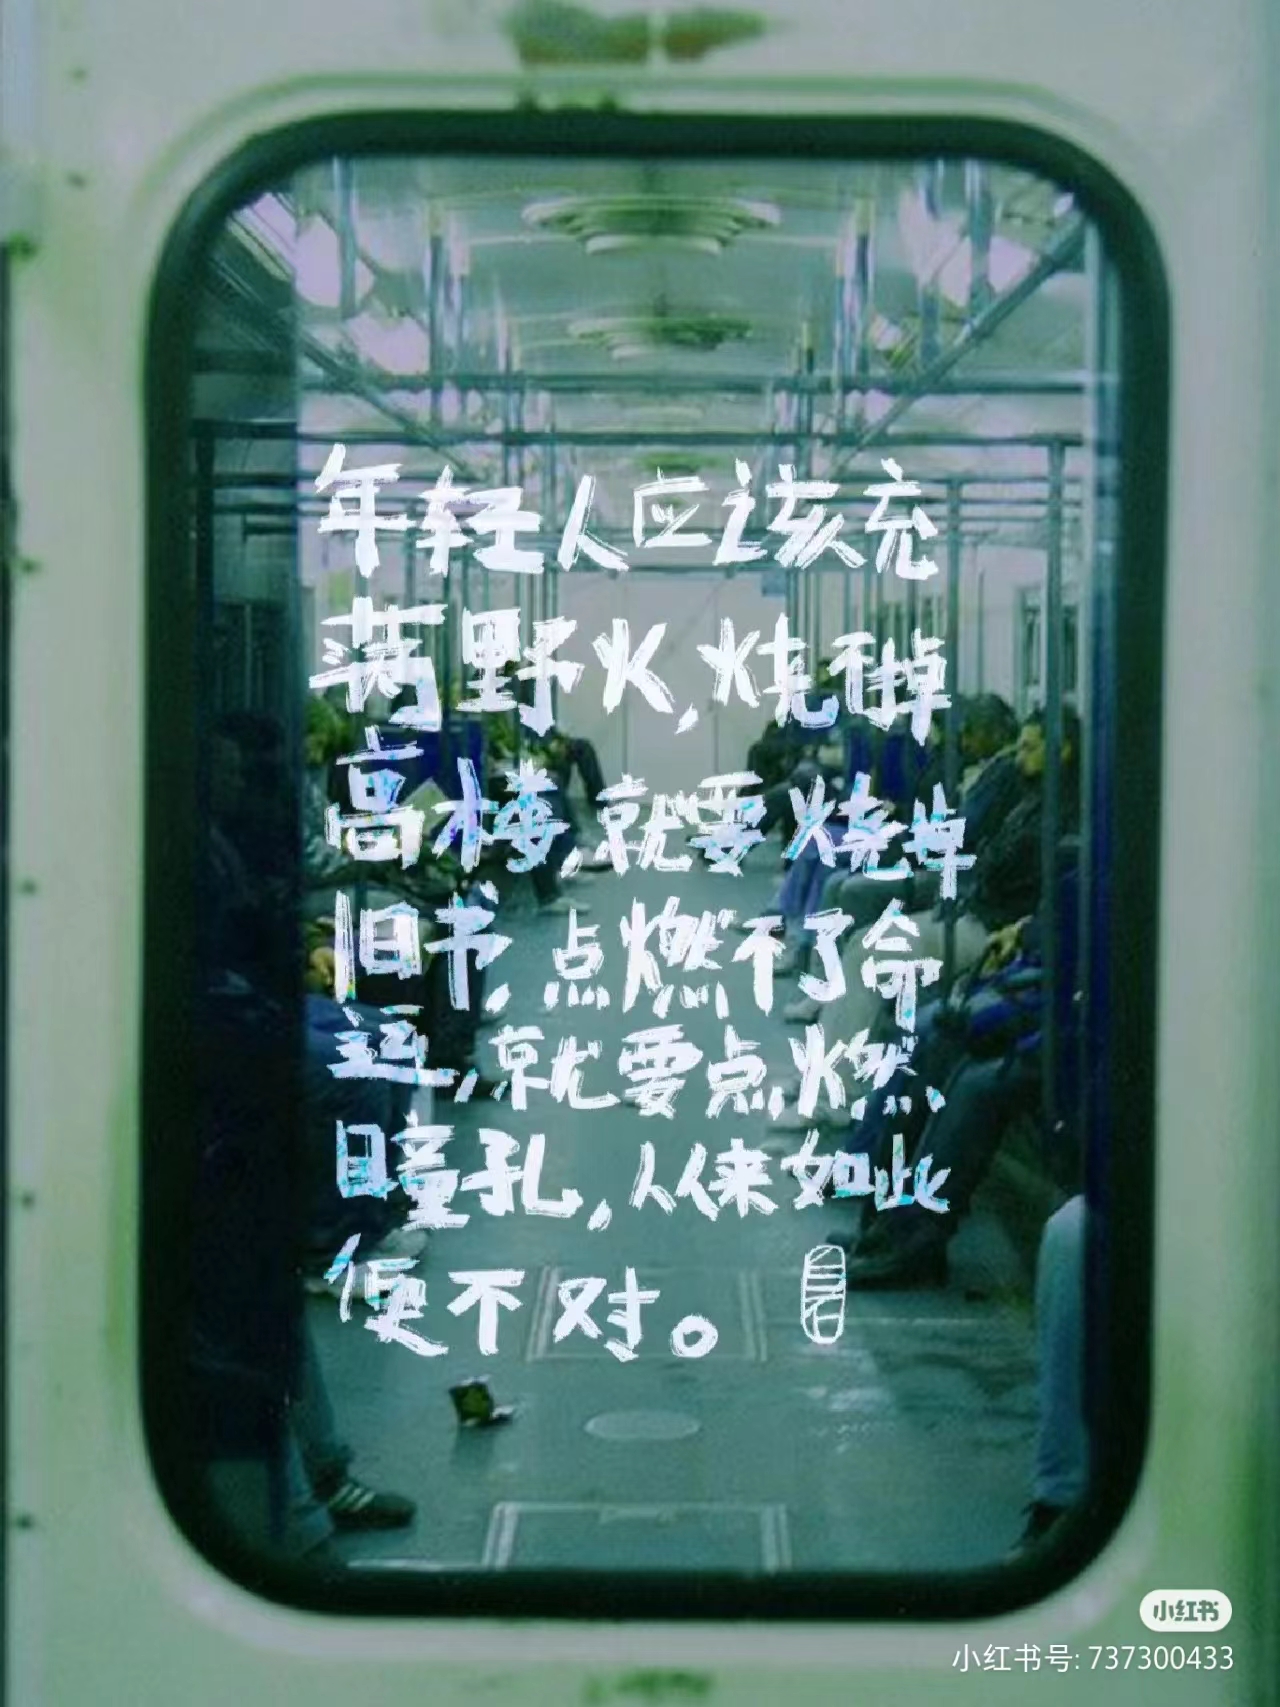 年轻人应该充
满野火,烧不掉
高楼,就要烧掉
旧书,点燃不了命
运,就要点燃
瞳孔,从来如此
便不对。
小红书
小红书号: 737300433